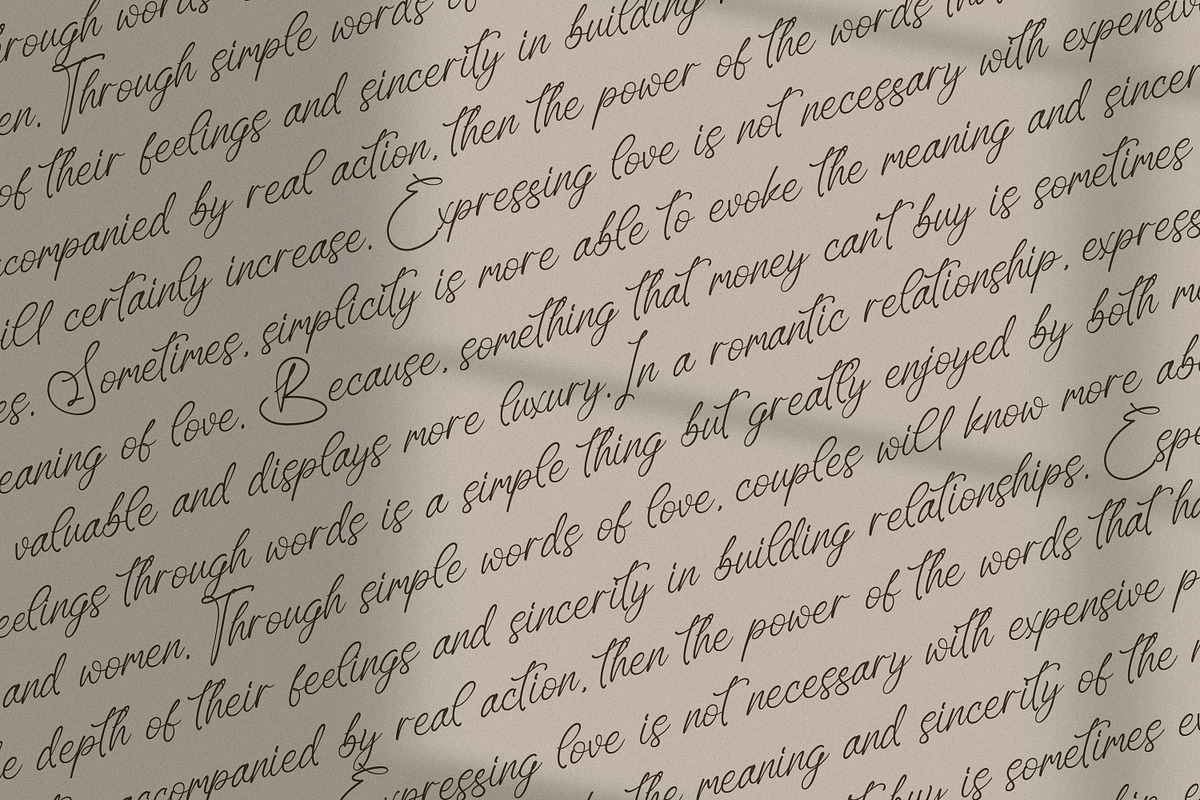 through words
en. Through simple words of
of their feelings and sincerity in building
accompanied by real action, then the power of the words
ill certainly increase. Expressing love is not necessary with expensive
es. Sometimes, simplicity is more able to evoke the meaning and sincer
eaning of love. Because, something that money can't buy is sometimes
valuable and displays more luxury. In a romantic relationship, express
eelings through words is a simple thing but greatly enjoyed by both m
and women. Through simple words of love, couples will know more ab
e depth of their feelings and sincerity in building relationships. Espe
accompanied by real action, then the power of the words that ha
Expressing love is not necessary with expensive p
the meaning and sincerity of the
buy is sometimes